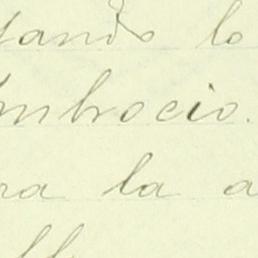 tando lo
mbrocio.
ra la a